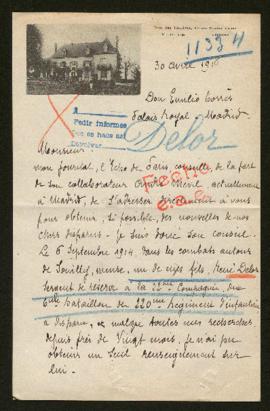 11334
30 avril 1916
Don Emilio Torrès
Palais Royal, Madrid.
Pedir informes
Delor
Monsieur
mon journal, l'Echo de Paris, conseille, de la part
de son collaborateur actuellement
à Madrid, de s'adresser à vous
pour obtenir, si possible, des nouvelles de nos
chers disparus. Je suis donc son conseil.
Le 6 septembre 1914, dans les combats autour
de Souilly, meuse, un de mes fils, René Delor
sergent de réserve à la Compagnie, du
6me bataillon du 220me régiment d'infanterie
a disparu, et malgré toutes mes recherches
depuis près de vingt mois, je n'ai pu
obtenir un seul renseignement sur
lui.